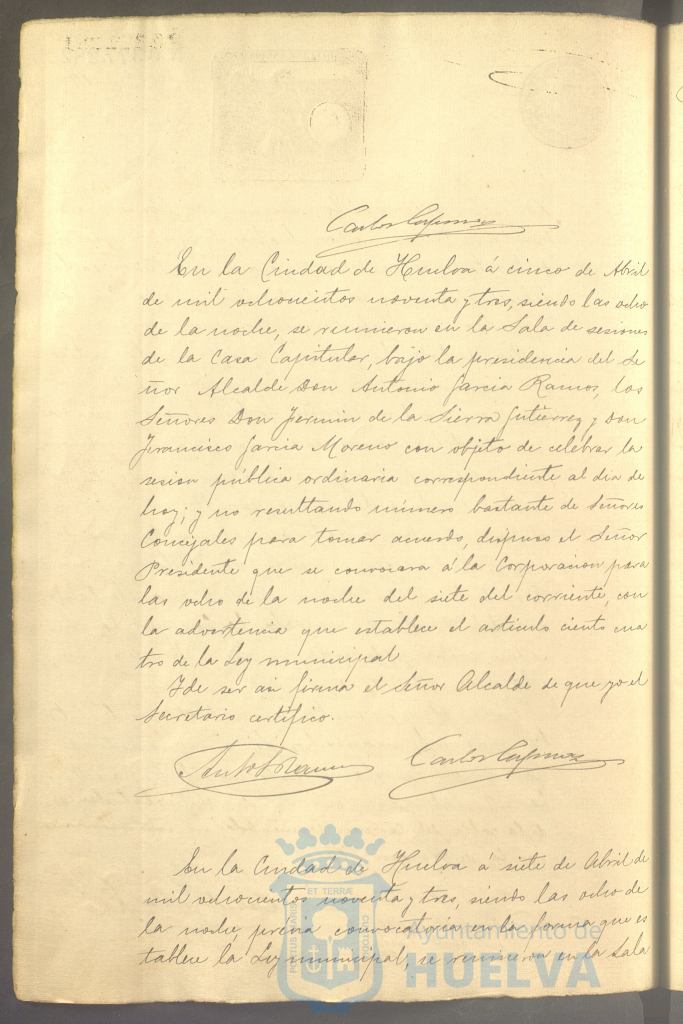 Carlos
En la Ciudad de Huelva á cinco de Abril
de mil ochocientos noventa y tres, siendo las ocho
de la noche, se reunieron en la Sala de sesiones
de la Casa Capitular, bajo la presidencia del Se
ñor Alcalde Don Antonio Garcia Ramos, los
Señores Don Fermin de la Sierra Gutierrez y Don
Francisco Garcia Moreno con objeto de celebrar la
sesion pública ordinaria correspondiente al dia de
hoy; y no resultando número bastante de Señores
Concejales para tomar acuerdo, dispuso el Señor
Presidente que se convocara á la Corporacion para
las ocho de la noche del siete del corriente, con
la advertencia que establece el articulo ciento cua
tro de la Ley municipal
Y de ser asi firma el Señor Alcalde de que yo el
Secretario certifico.
Carlos
En la Ciudad de Huelva á siete de Abril de
mil ochocientos noventa y tres, siendo las ocho de
la noche, prévia convocatoria en la forma que es
tablece la Ley municipal, se reunieron en la Sala
PORTUS MARIS ET TERRÆ CUSTODIA
Ayuntamiento de
HUELVA